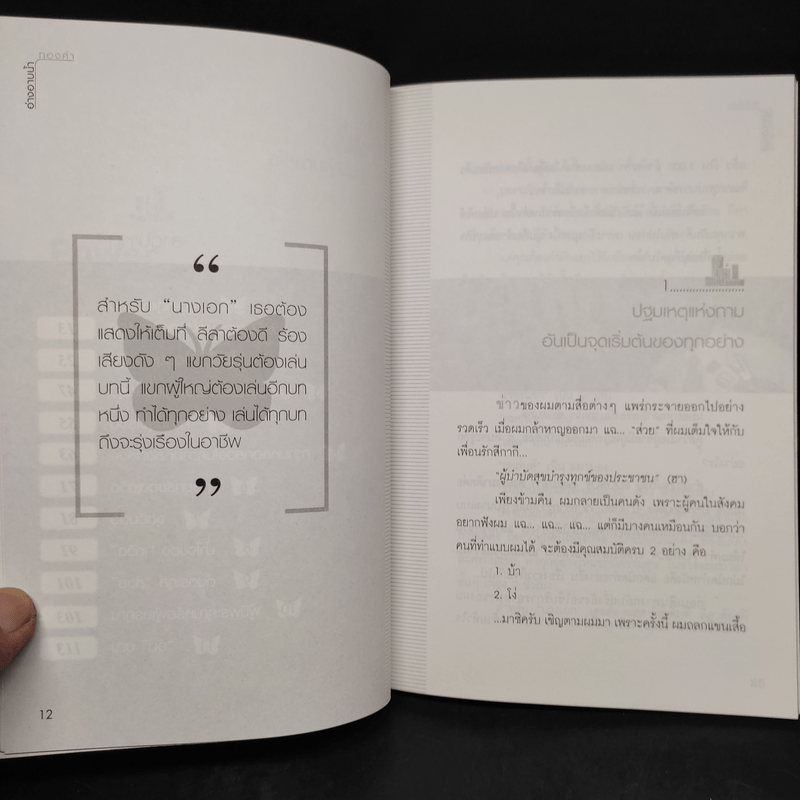 อ่างอาบน้ำ
“
สำหรับ “นางเอก” เธอต้อง
แสดงให้เต็มที่ ลีลาต้องดี ร้อง
เสียงดัง ๆ แขกวัยรุ่นต้องเล่น
บทนี้ แขกผู้ใหญ่ต้องเล่นอีกบท
หนึ่ง ทำได้ทุกอย่าง เล่นได้ทุกบท
ถึงจะรุ่งเรืองในอาชีพ
”
12
1
ปฐมเหตุแห่งกาม
อันเป็นจุดเริ่มต้นของทุกอย่าง
ข่าวของผมตามสื่อต่างๆ แพร่กระจายออกไปอย่าง
รวดเร็ว เมื่อผมกล้าหาญออกมา แฉ... “ส่วย” ที่ผมเต็มใจให้กับ
เพื่อนรักสีกากี...
“ผู้บำบัดสุขบำรุงทุกข์ของประชาชน” (ฮา)
เพียงข้ามคืน ผมกลายเป็นคนดัง เพราะผู้คนในสังคม
อยากฟังผม แฉ... แฉ... แฉ... แต่ก็มีบางคนเหมือนกัน บอกว่า
คนที่ทำแบบผมได้ จะต้องมีคุณสมบัติครบ 2 อย่าง คือ
1. บ้า
2. โง่
...มาซิครับ เชิญตามผมมา เพราะครั้งนี้ ผมถลกแขนเสื้อ